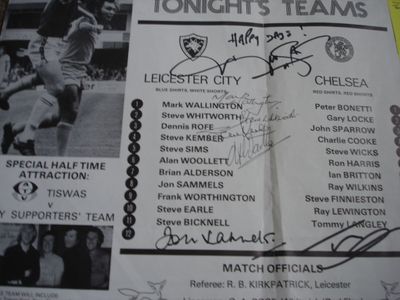 TONIGHT'S TEAMS
HAPPY DAYS!
LEICESTER CITY
BLUE SHIRTS, WHITE SHORTS
CHELSEA
RED SHIRTS, RED SHORTS
1 Mark WALLINGTON Peter BONETTI
2 Steve WHITWORTH Gary LOCKE
3 Dennis ROFE John SPARROW
4 Steve KEMBER Charlie COOKE
5 Steve SIMS Steve WICKS
6 Alan WOOLLETT Ron HARRIS
7 Brian ALDERSON Ian BRITTON
8 Jon SAMMELS Ray WILKINS
9 Frank WORTHINGTON Steve FINNIESTON
10 Steve EARLE Ray LEWINGTON
11 Steve BICKNELL Tommy LANGLEY
12
Jon Sammels
SPECIAL HALF TIME
ATTRACTION:
TISWAS
V
SUPPORTERS' TEAM
MATCH OFFICIALS
Referee: R. B. KIRKPATRICK, Leicester
TEAM WILL INCLUDE